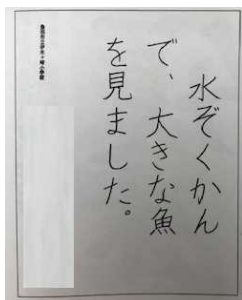 水ぞくかん
で、大きな魚
を見ました。